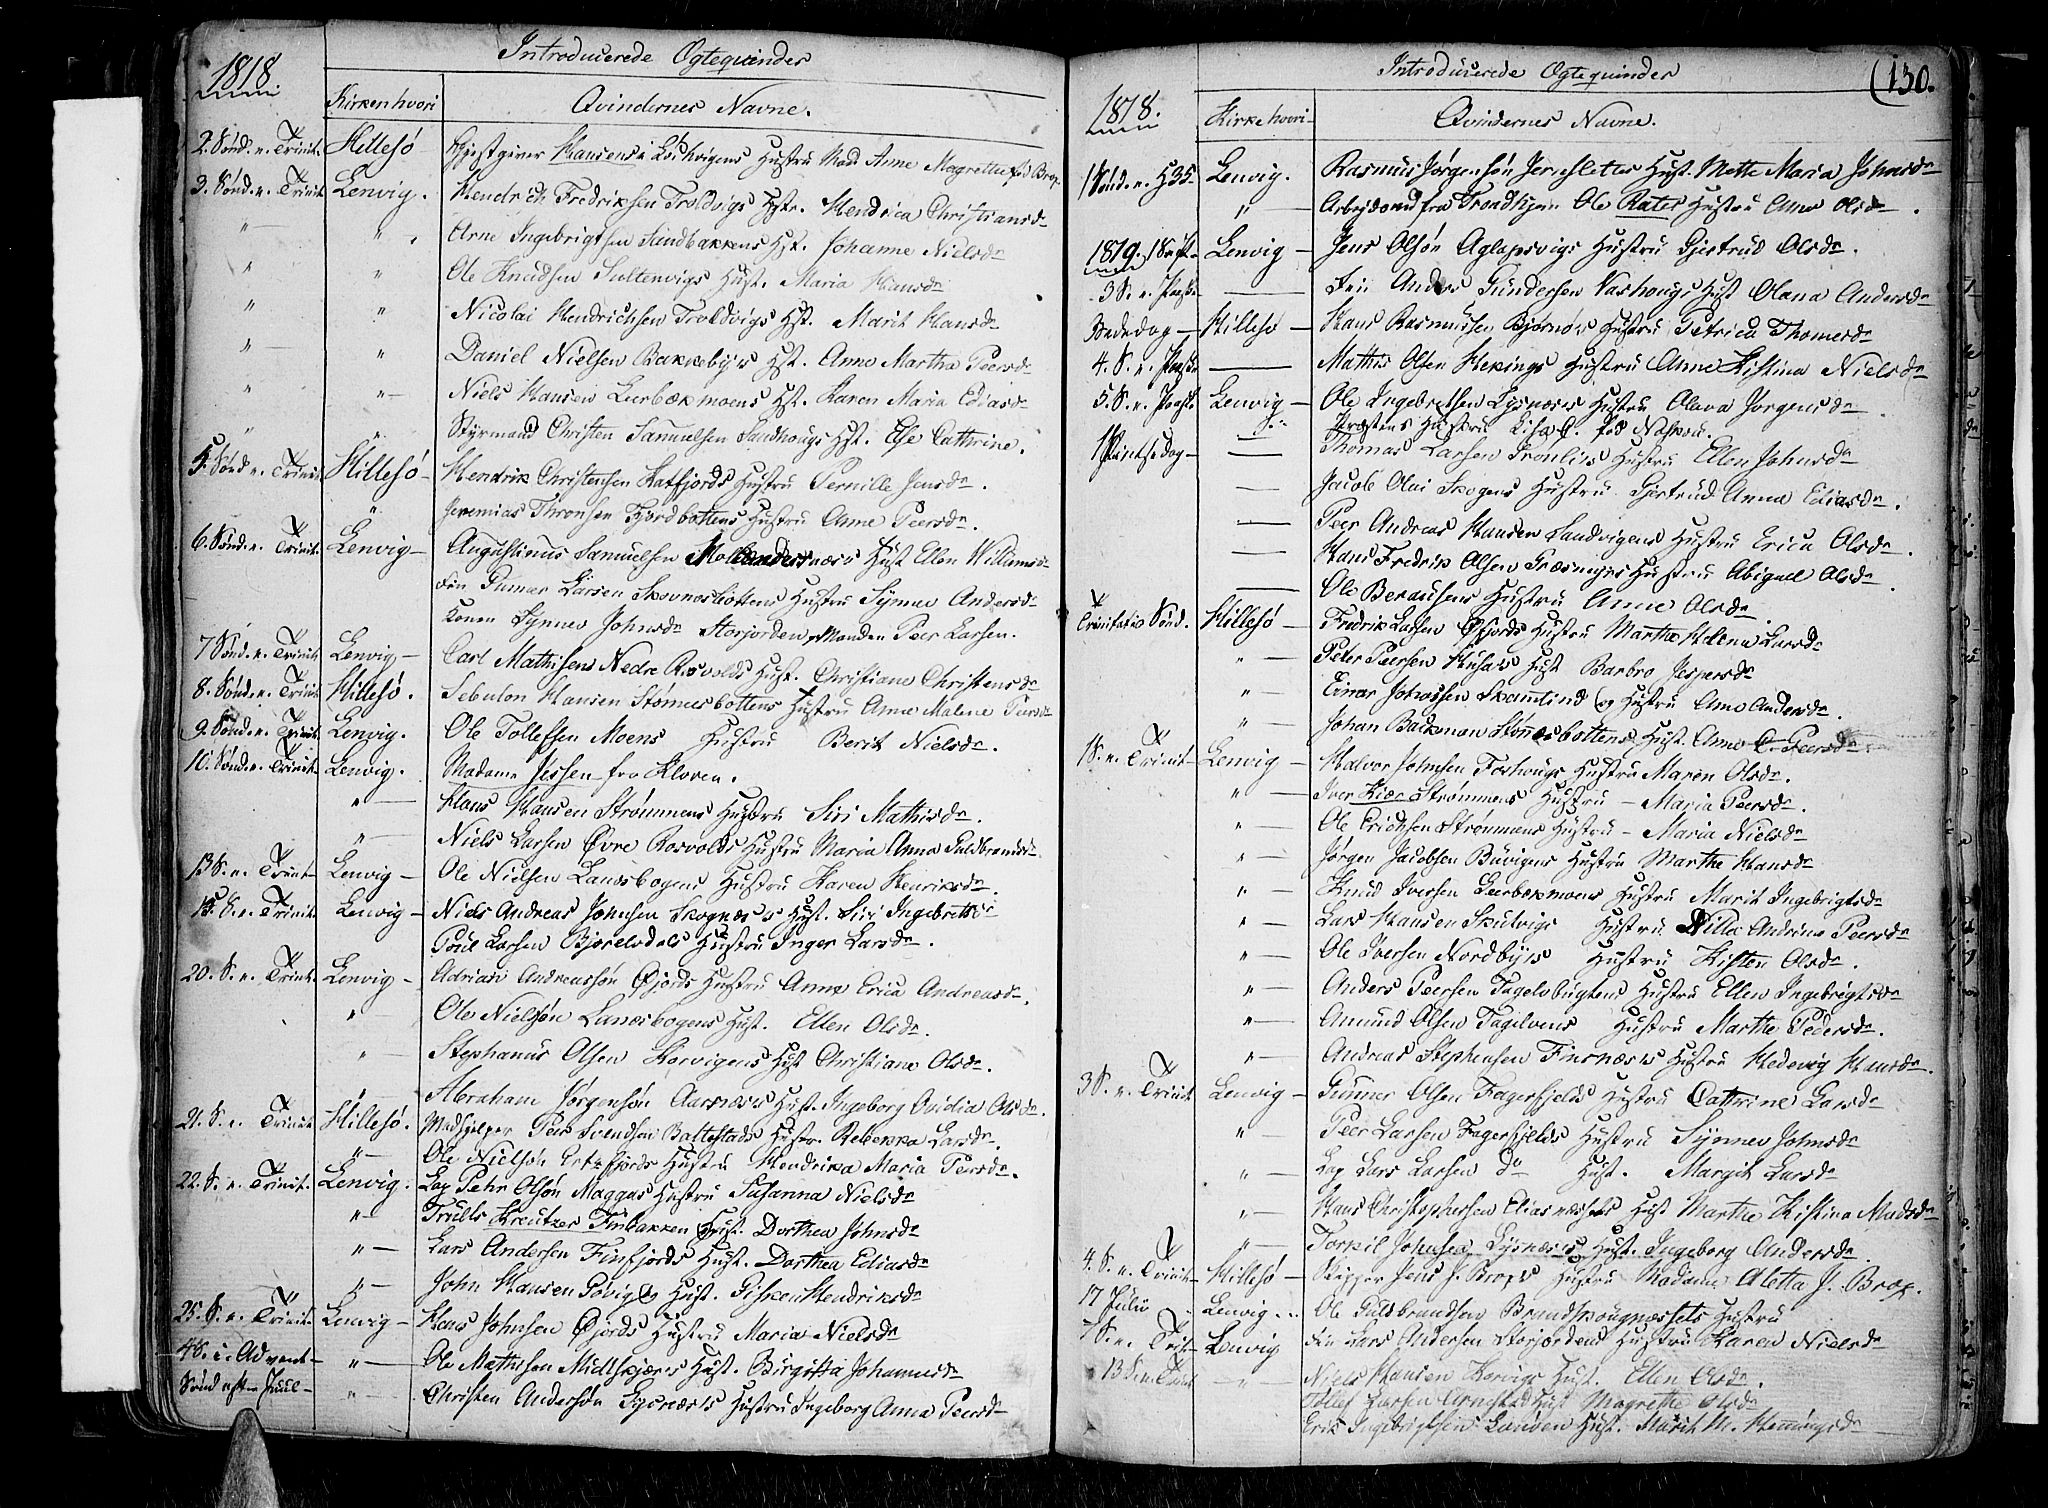 1818
Introducerede Ogtequinder
Kirken hvori
Qvindernes Navne.
2. Sønd. e. Trinit. Hillesø Hansens Hustru Mad Anne Magrethe
3. Sønd. e. Trinit. Lenvig. Hendrich Fredriksen Troldvigs Hstr. Hendrica Christiansd
" " Arne Ingebrigtsen Sandbakkens Hst. Johanne Nielsd
" " Ole Knudsen Sultenvigs Hust. Maria Hansd
" " Nicolai Hendrichsen Troldvigs Hst. Marit Hansd
" " Daniel Nielsen Bakkebyes Hst. Anne Martha Peersd
" " Niels Hansen Leerbækmoens Hst. Karen Maria Ediasd
" " Styrmand Christen Samuelsen Sandhougs Hst. Else Cathrine.
5. Sønd. e. Trinit. Hillesø Hendrik Christensen Katfjords Hustru Pernille Jensd.
" Jeremias Thronsen Fjordbottens Hustru Anne Peersd.
6. Sønd. e. Trinit. Lenvig Augustinus Samuelsen Hust Ellen Williumsd
Fin Gunner Larsen Skovnesbottens Hustru Synnev Andersd
Konen Synnev Johnsd Storjorden, Manden Peer Larsen.
7 Sønd. e. Trinit Lenvig Carl Mathisens Nedre Rosvolds Hust. Christiane Christensd
8. Sønd. e. Trinit Hillesø. Sebulon Hansen Stønnesbottens Hustru Anne Malene Peersd
9. Sønd. e. Trinit. Lenvig. Ole Tollefsen Moens Hustru Berit Nielsd.
10. Sønd. e. Trinit Lenvig. Madame Jessen fra Kloven.
" Hans Hansen Strømmens Hustru Siri Mathisd.
" Niels Larsen Øvre Rosvolds Hustru Maria Anna Guldbrandsd.
13 S. e. Trinit Lenvig Ole Nielsen Landsbogens Hustru Karen Henriksd.
S. e. Trinit. Lenvig Niels Andreas Johnsen Skognæs's Hust. Siri Ingebrits
Poul Larsen Bjorelvdals Hustru Inger Larsd.
20. S. e. Trinit. Lenvig Adrian Andreassøn Øjords Hustru Anne Erica Andreasd.
" Ole Nielsøn Landsbogens Hust. Ellen Olsd.
" Stephanus Olsen Kervigens Hst Christiane Olsd.
" Abraham Jørgensøn Aarsnæs's Hust. Ingeborg Ovidia Olsd.
21. S. e. Trinit Hillesø. Medhjelper Peer Svendsen Baltestads Hustr. Rebekka Larsd.
" Ole Nielsøn Ertnfjords Hustru Hendrika Maria Peersd.
22. S. e. Trinit. Lenvig. Lap Pehr Olsøn Maggas Hustru Susanna Nielsd
" Truls Kreutzer Finbakken Hust. Dorthea Johnsd
" Lars Andersen Finfjords Hust. Dorthea Ediasd
" John Hansen Povig Hust. Gisken Hendriksd
25. S. e. Trinit. Lenvig Hans Johnsen Øjords Hustru Maria Nielsd
4 S. i. Advent " Ole Mathisen Midtskjærs Hust. Birgitta Johannisd
Sønd efter Juul " Christen Andersøn Lysnæs's Hustru Ingeborg Anna Peersd
1818.
Introducerede Ogtequinder
(130.
Kirke hvori
Qvindernes Navne.
1 Sønd. e. H3K Lenvig. Rasmus Jørgensøn Hust. Mette Maria Johnsd
" Arbejdsmd fra Trondhjem Ole Rates Hustru Anne Olsd.
1819. Lenvig Jens Olsøn Aglapsvigs Hustru Gjertrud Olsd.
3 S. e. Paaske Fin Anders Gundersen Vashougs Hust Olana Andersd
Bededag Hillesø Hans Rasmussen Bjørnøs Hustru Petrica Thomesd
4. S. e. Paaske Mathis Olsen Hekings Hustru Anne Kistina Nielsd
5. S. e. Paaske Lenvig Ole Ingebretsen Lysnæs's Hustru Olava Jorgensd
Præstens Hustru
1 Pintsedag Thomas Larsen Tronlis Hustru Ellen Johnsd
Jacob Olai Skogens Hustru Gjertrud Anna Ediasd.
Peer Andreas Hansen Sandvigens Hustru Erica Olsd.
Hans Fredrik Olsen Græsmyrs Hustru Abigael Olsd.
Ole Berausens Hustru Anne Olsd.
Trinitatis Sønd. Hillesø Fredrik Larsen Øfjords Hustru Marthe Helena Larsd
" Peter Peersen Husøes Hust Barbro Jespersd
" Einar Johnssen Skamtind og Hustru Ane Andersd.
" Johan Backman Stønesbottens Hust. Anne C. Peersd
1 S. e. Trinit Lenvig Halvor Johnsen Foshougs Hustru Maren Olsd.
" Iver Kiær Strømmens Hustru Maria Peersd.
" Ole Erichsen Strømmens Hustru Maria Nielsd
" Jørgen Jacobsen Buvigens Hustru Marthe Hansd
" Knud Iversen Leerbekmoens Hustru Marit Ingebrigtsd
" Lars Hansen Skutvigs Hustru Silla Andrina Peersd
" Ole Iversen Nordbyes Hustru Kisten Olsd.
" Anders Peersen Fagelvbugtens Hustru Ellen Ingebrigtsd
" Amund Olsen Fagelvens Hustru Marthe Pedersd.
" Andreas Stephensen Finsnæs's Hustru Hedevig Hansd.
3 S. e. Trinit Lenvig Gunner Olsen Fagerfjelds Hustru Cathrine Larsd
" Peer Larsen Fagerfjelds Hustru Synnev Johnsd
" Lap Lars Larsen do Hust. Margit Larsd
" Hans Christophersen Eliasnæsets Hust Marthe Kistina Madsd
" Torkil Johnsen Lysnæs's Hust. Ingeborg Andersd.
4. S. e. Trinit Hillesø Skipper Jens J. Brox's Hustru Madame Aletta J. Brox.
17 Julii Lenvig Ole Guldbrandsen Brandskougnæssets Hustru
7 S. e. Trinit Lenvig Fin Lars Andersen Storjordens Hustru Karen Nielsd
13 S. e. Trinit " Niels Hansen Kervigs Hust. Ellen Olsd.
Tollef Larsen Hust Magrethe Olsd
Erik Ingebrigtsen Hust. Marit M. Hemingsd